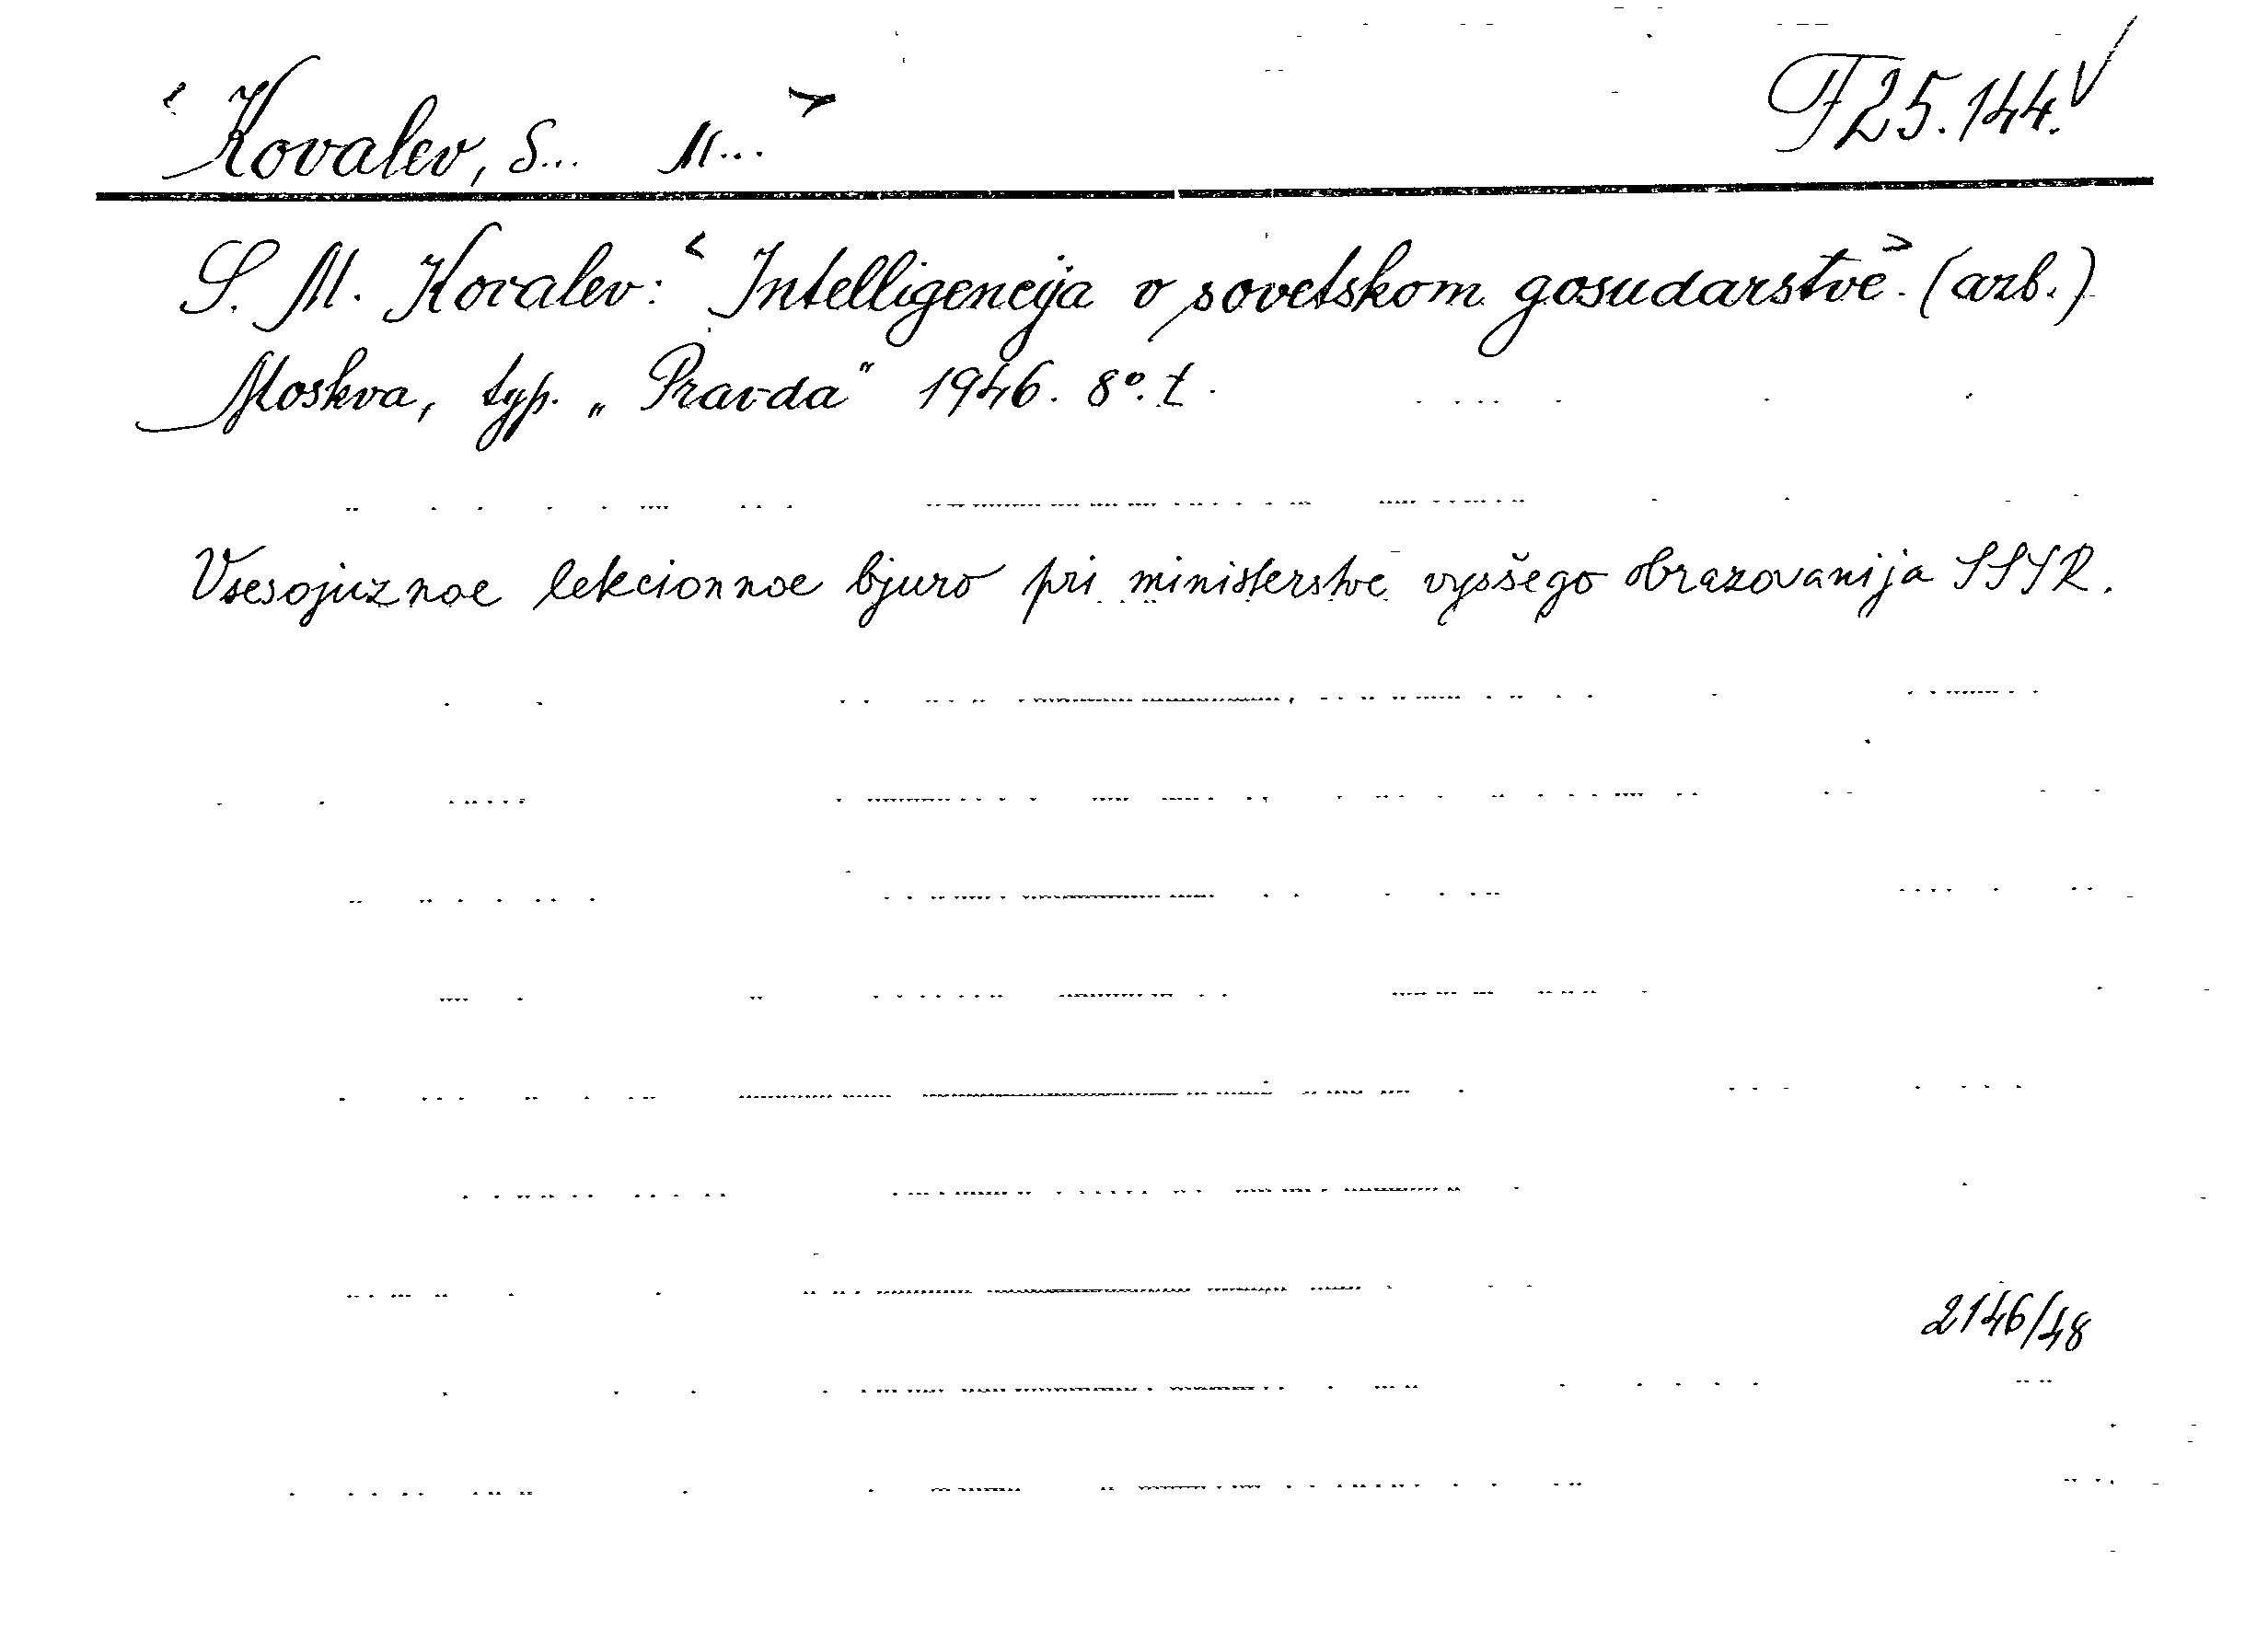 ‹ Kovalev, S... M... › F 25.144. √
S. M. Kovalev: ‹ Intelligencija v sovetskom gosudarstve ›. (azb.)
Moskva, typ. „Pravda" 1946. 8°. t.
Vsesojuznoe lekcionnoe bjuro pri ministerstve vysšego obrazovanija SSSR.
2146/48